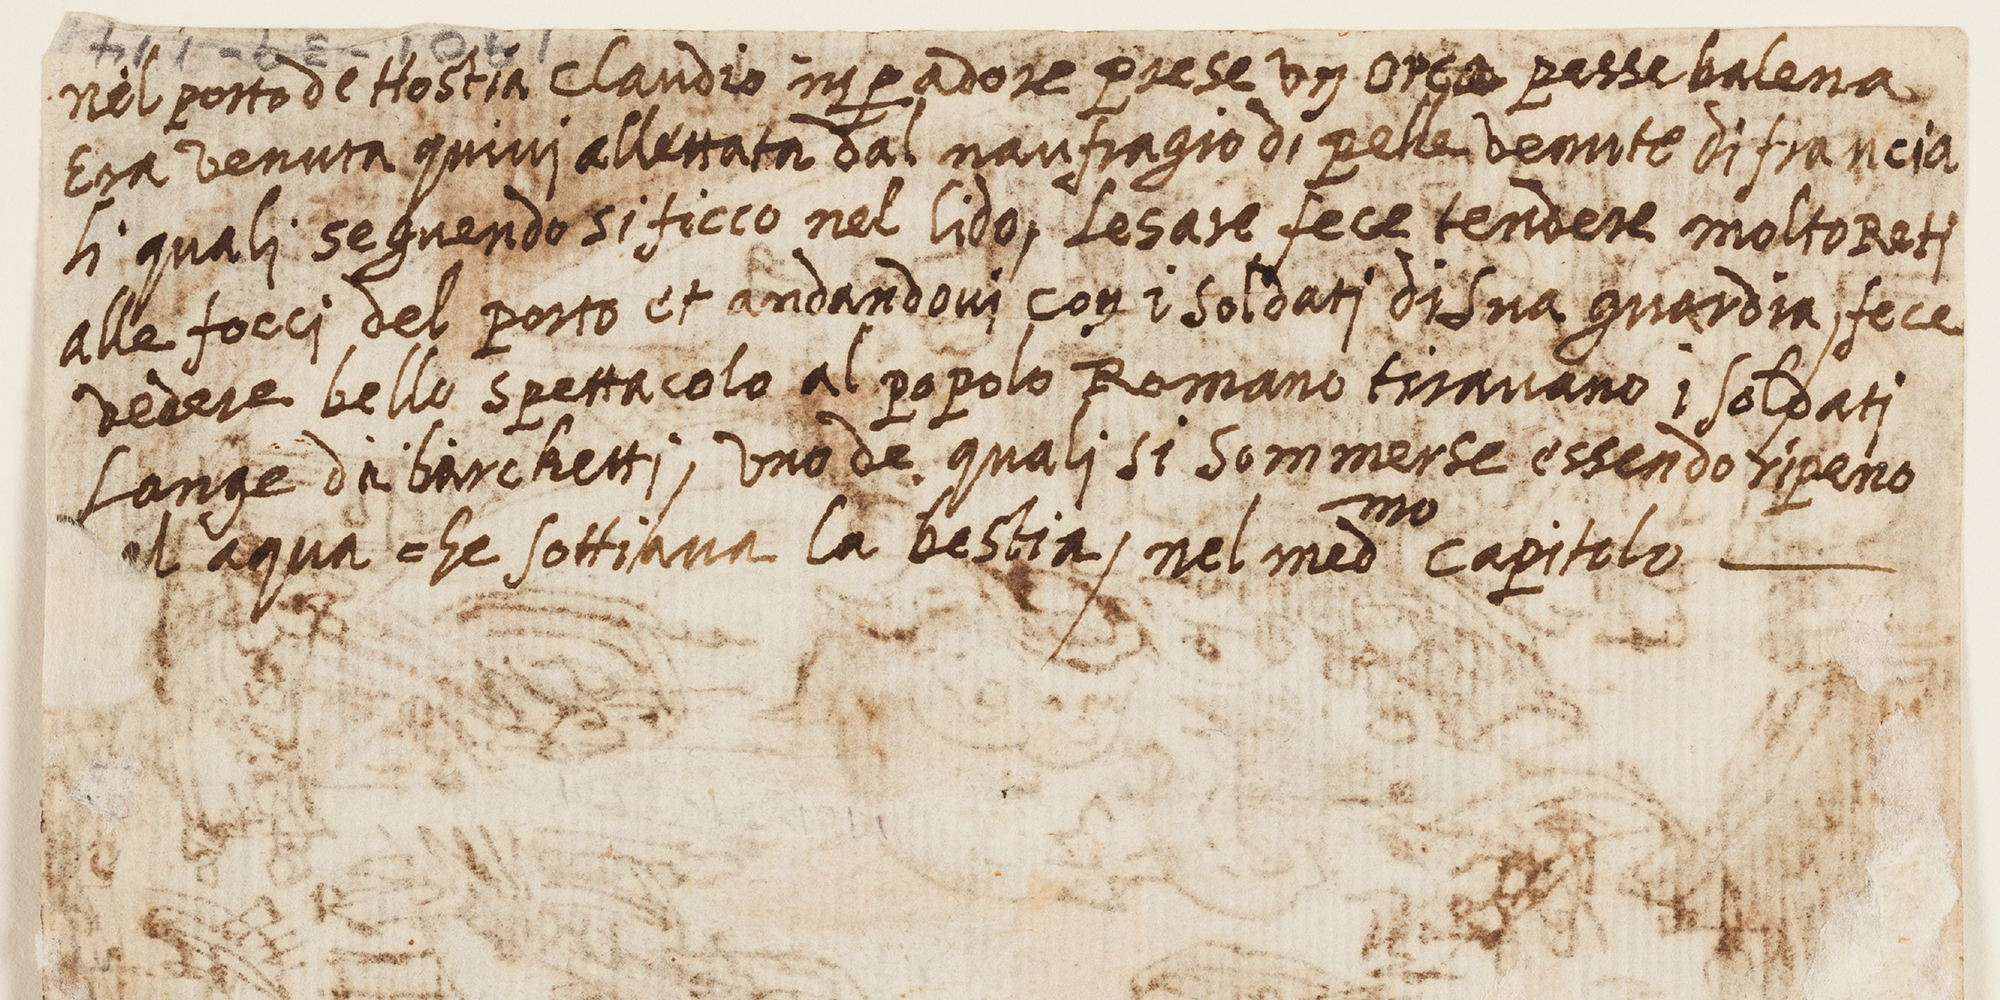 nel porto de Hostia Claudio imperadore prese un orca pesse balena
Era venuta quivi allettata dal naufragio di pelle venute di francia
li quali seguendo si ficco nel lido, Cesare fece tendere molto Reti
alle focci del porto et andandovi con i soldati di sua guardia, fece
vedere bello spettacolo al popolo Romano tiravano i soldati
Lanze da barchetti, uno de quali si sommerse essendo ripeno
al aqua che fottiava la bestia, nel med.mo capitolo